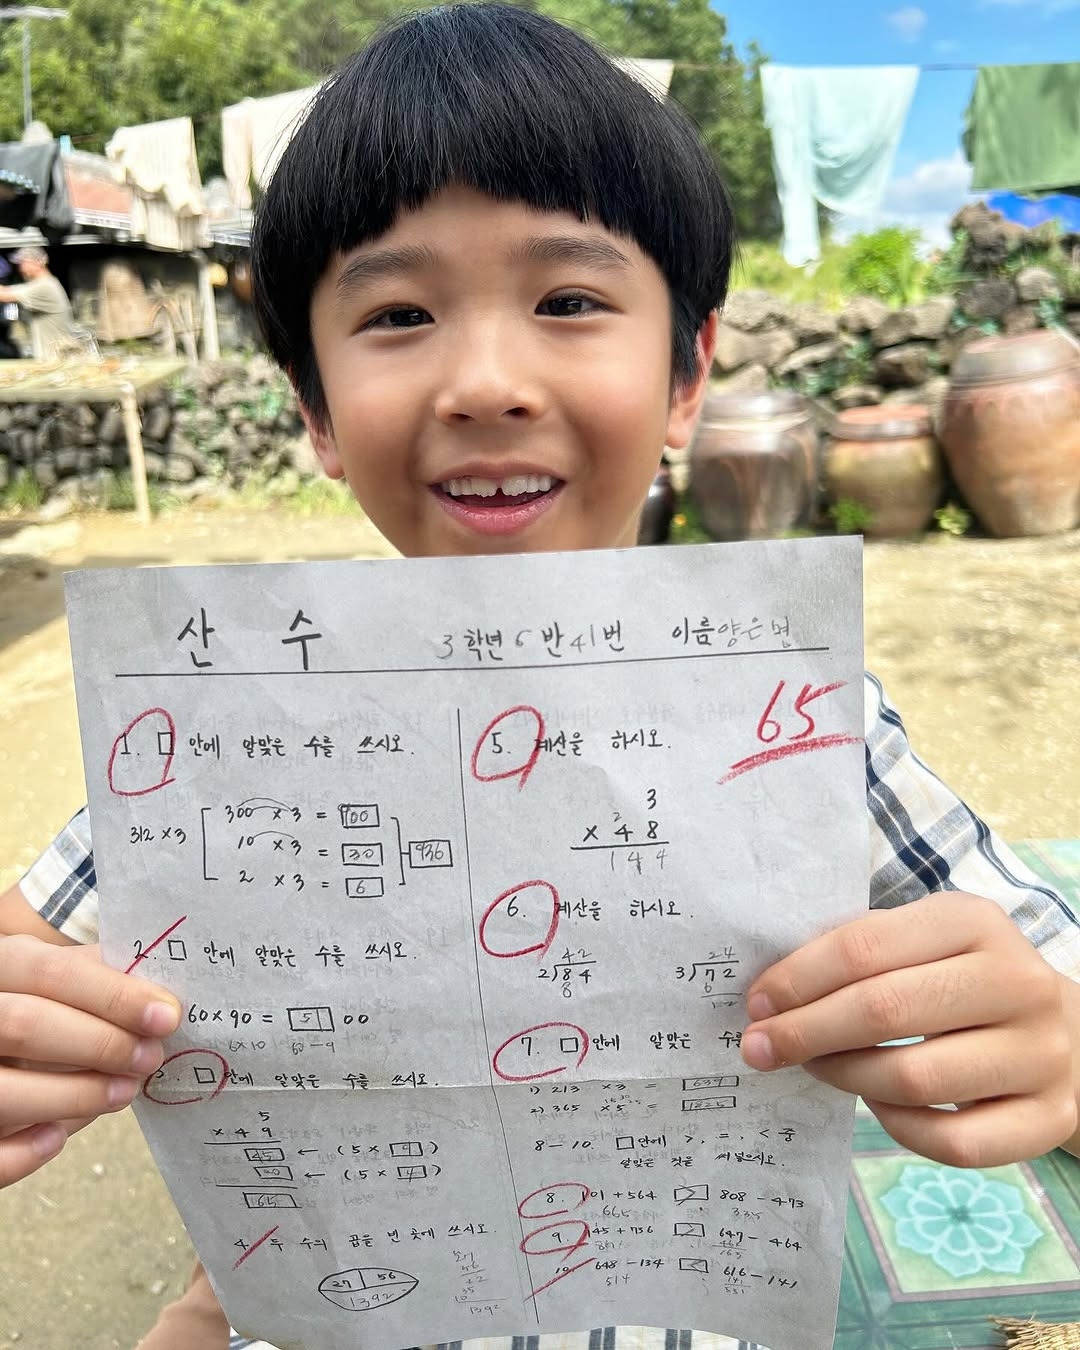 산 수 3학년 6반 41번 이름 양은명
65
1. □ 안에 알맞은 수를 쓰시오.
312 × 3
300 × 3 = 900
10 × 3 = 30
2 × 3 = 6
936
2. □ 안에 알맞은 수를 쓰시오.
60×90 = 51 00
6×10 60-9
3. □ 안에 알맞은 수를 쓰시오.
5
× 4 9
45 ← (5 × 9)
20 ← (5 × 4)
65
4. 두 수의 곱을 빈 곳에 쓰시오.
27 56
1392
5. 계산을 하시오.
3
2
× 4 8
1 4 4
6. 계산을 하시오.
42
2)84
8
24
3)72
6
12
7. □ 안에 알맞은 수를
1) 213 × 3 = 639
2) 365 × 5 = 1825
8-10. □안에 >, =, < 중
알맞은 것을 써넣으시오.
8. 101 + 564 > 808 - 473
665 335
9. 145 + 756 > 647 - 464
10. 648 - 134 < 616 - 141
514